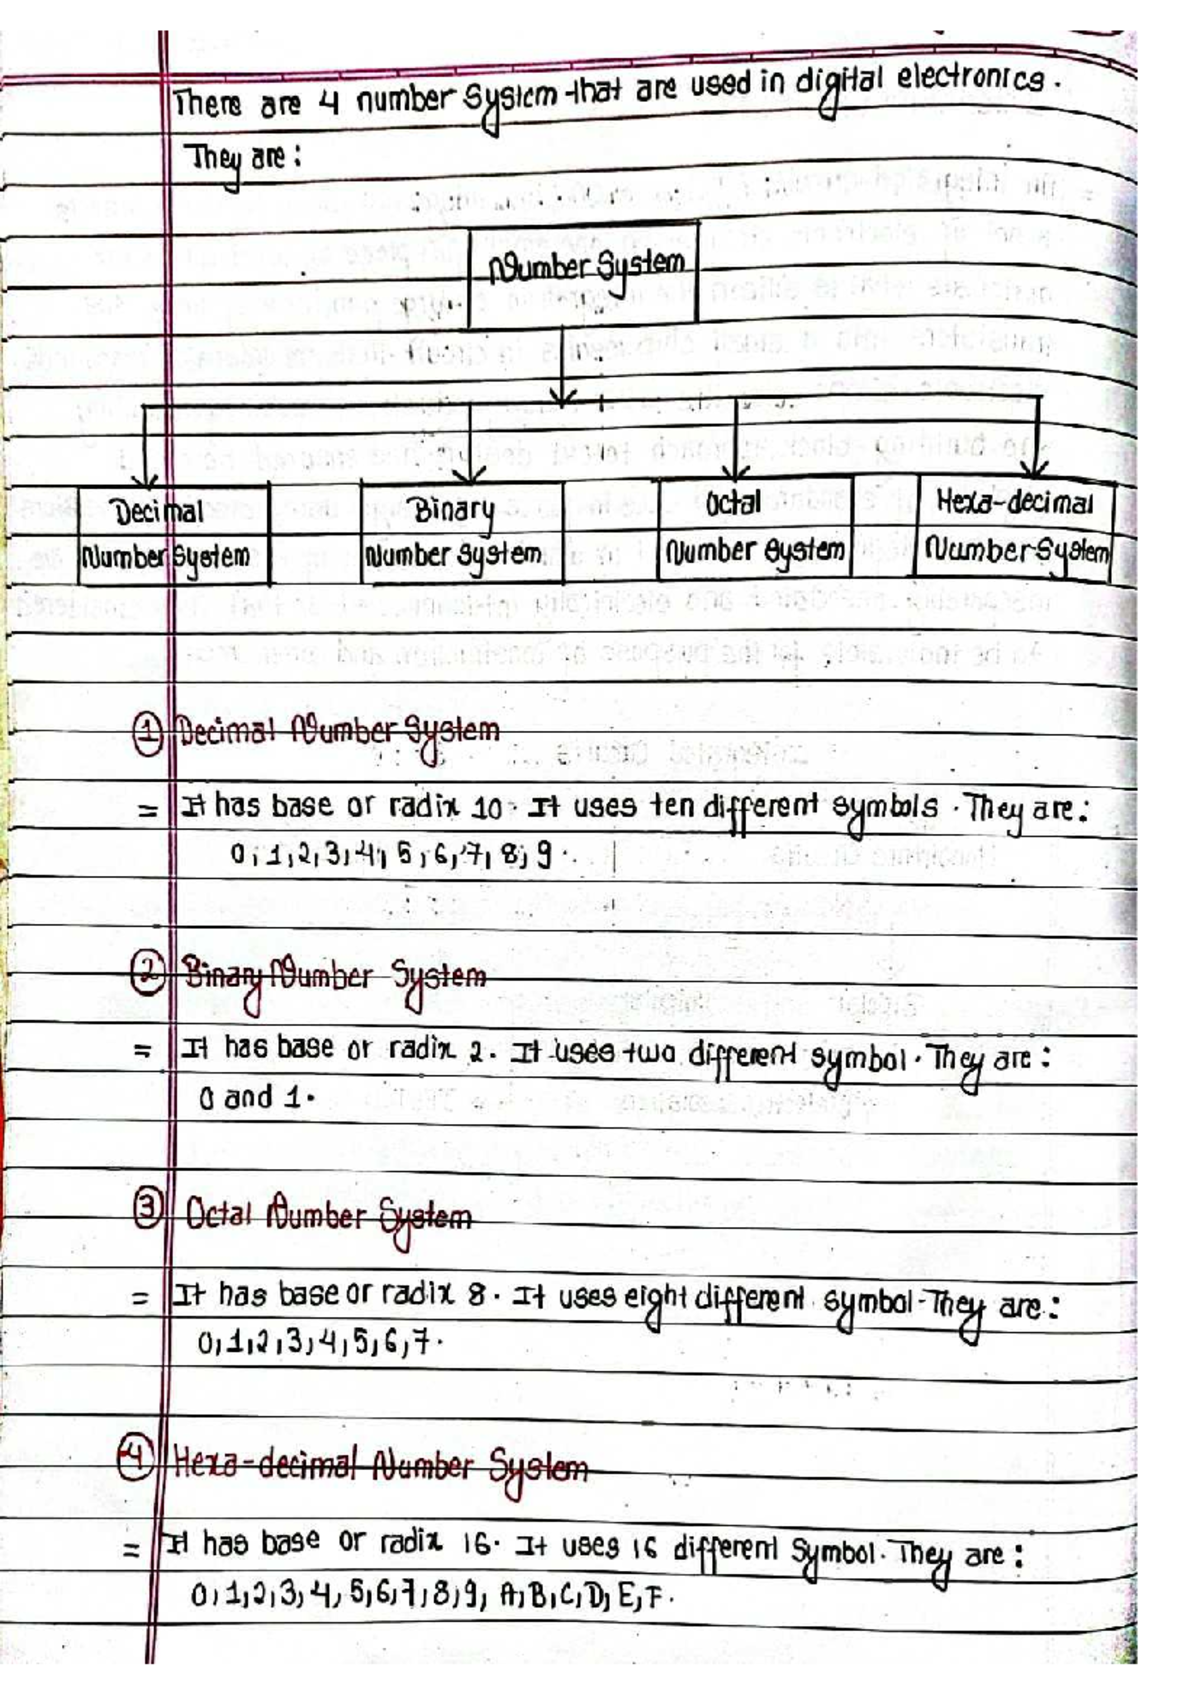 There are 4 number system that are used in digital electronics.
They are:
Number System
Decimal
Number System
Binary
Number System
Octal
Number System
Hexa-decimal
Number System
① Decimal Number System
= It has base or radix 10. It uses ten different symbols. They are:
0,1,2,3,4,5,6,7,8,9.
② Binary Number System
= It has base or radix 2. It uses two different symbol. They are:
0 and 1.
③ Octal Number System
= It has base or radix 8. It uses eight different symbol. They are:
0,1,2,3,4,5,6,7.
④ Hexa-decimal Number System
= It has base or radix 16. It uses 16 different Symbol. They are:
0,1,2,3,4,5,6,7,8,9, A,B,C,D,E,F.